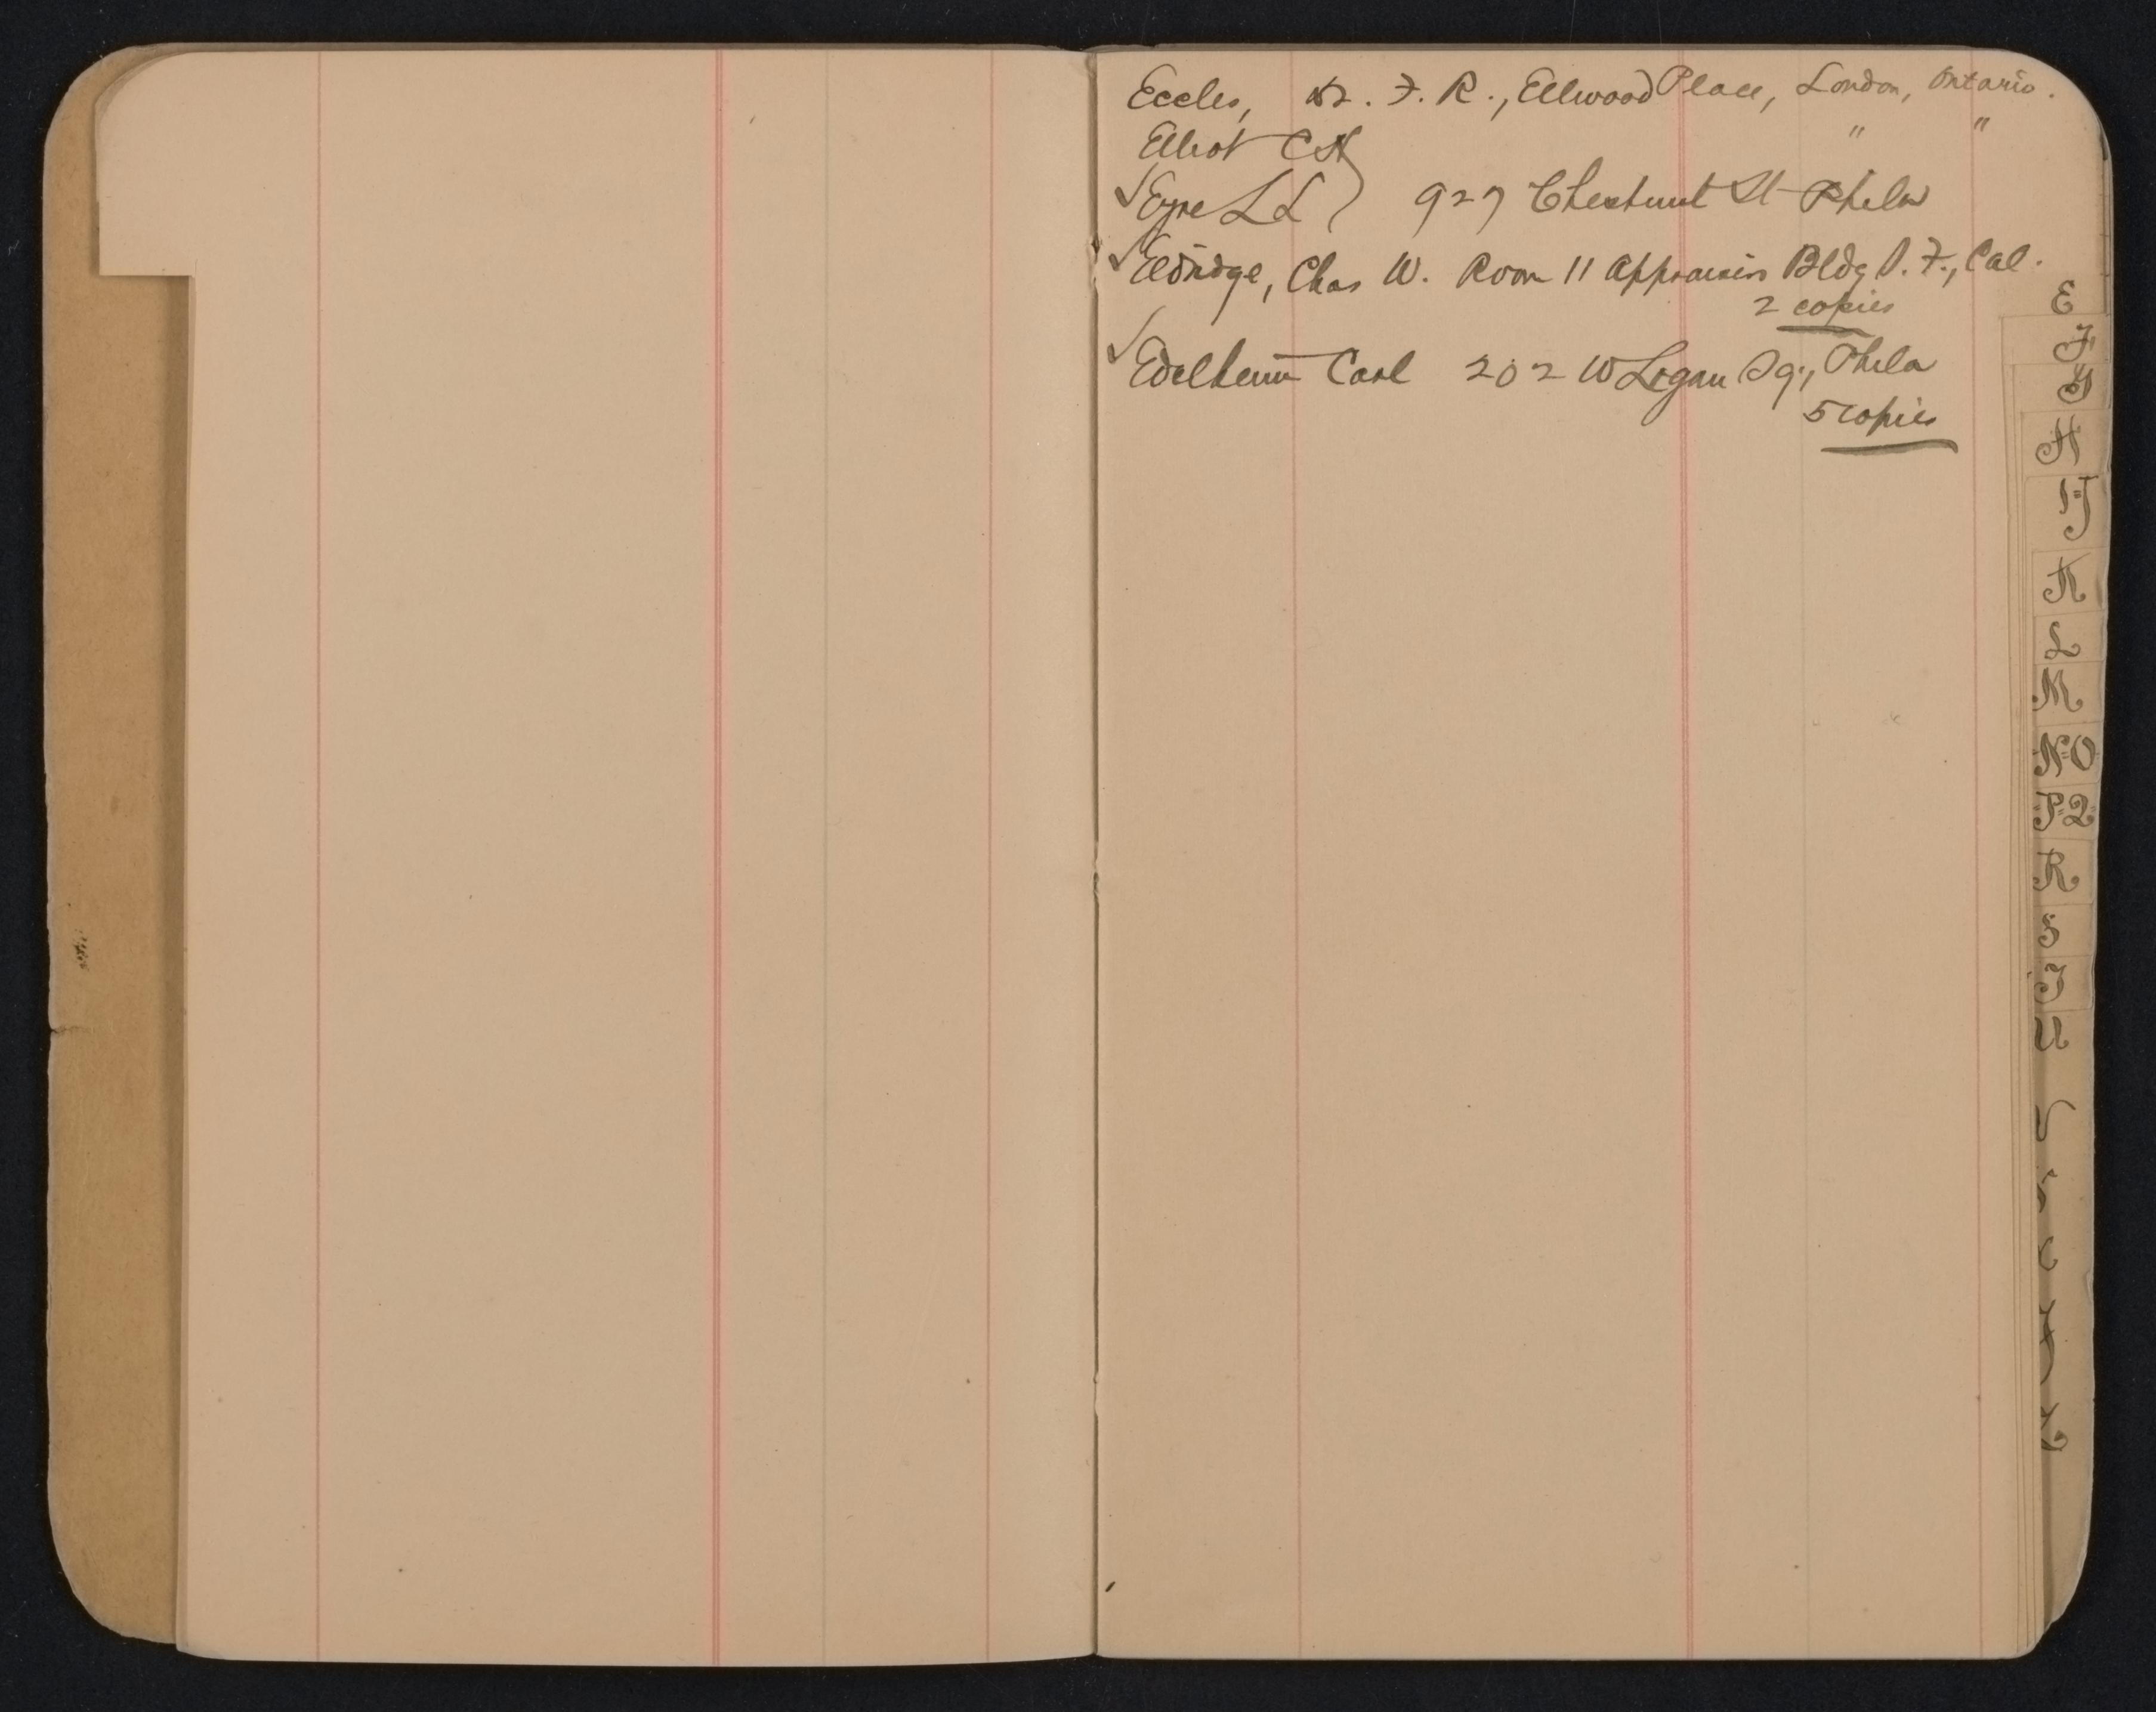 Eccles, Dr. F. R., Ellwood Place, London, Ontario.
Elliot C H " "
√ Eyre L L } 927 Chestnut St Phila
√ Eldridge, Chas W. Room 11 Appraisers Bldg S. F., Cal.
2 copies
√ Edelheim Carl 202 W Logan Sq., Phila
5 copies
E
F
G
H
I-J
K
L
M
N-O
P-Q
R
S
T
U